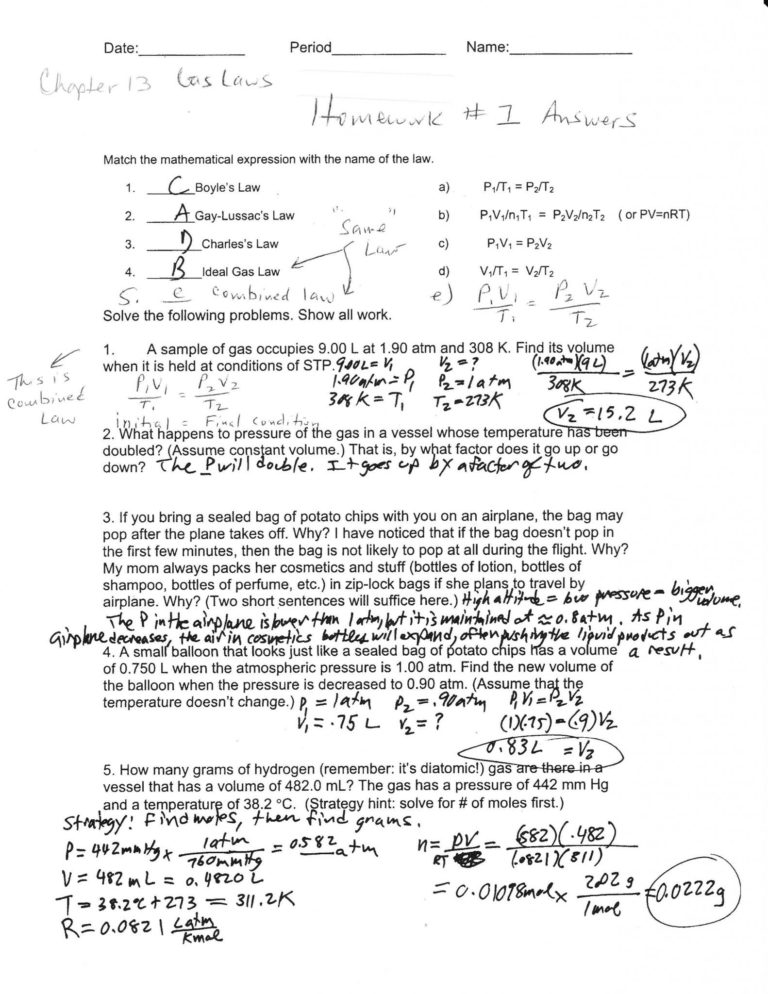 Date: Period Name:
Chapter 13 Gas Laws
Homework # 1 Answers
Match the mathematical expression with the name of the law.
1. C Boyle's Law a) P₁/T₁ = P₂/T₂
2. A Gay-Lussac's Law b) P₁V₁/n₁T₁ = P₂V₂/n₂T₂ ( or PV=nRT)
3. D Charles's Law "Same Law" c) P₁V₁ = P₂V₂
4. B Ideal Gas Law d) V₁/T₁ = V₂/T₂
5. e combined law e) P₁V₁/T₁ = P₂V₂/T₂
Solve the following problems. Show all work.
1. A sample of gas occupies 9.00 L at 1.90 atm and 308 K. Find its volume
when it is held at conditions of STP. 9.00L = V₁ V₂ = ?
This is combined Law
P₁V₁/T₁ = P₂V₂/T₂
initial = Final condition
1.90atm = P₁ P₂ = 1atm
308K = T₁ T₂ = 273K
(1.90atm)(9L)/308K = (1atm)(V₂)/273K
V₂ = 15.2 L
2. What happens to pressure of the gas in a vessel whose temperature has been
doubled? (Assume constant volume.) That is, by what factor does it go up or go
down? The P will double. It goes up by a factor of two.
3. If you bring a sealed bag of potato chips with you on an airplane, the bag may
pop after the plane takes off. Why? I have noticed that if the bag doesn't pop in
the first few minutes, then the bag is not likely to pop at all during the flight. Why?
My mom always packs her cosmetics and stuff (bottles of lotion, bottles of
shampoo, bottles of perfume, etc.) in zip-lock bags if she plans to travel by
airplane. Why? (Two short sentences will suffice here.) High altitude = low pressure = bigger volume.
The P in the airplane is lower than 1 atm, but it is maintained at ≈ 0.8 atm. As P in
airplane decreases, the air in cosmetics bottles will expand, often pushing the liquid products out as
a result.
4. A small balloon that looks just like a sealed bag of potato chips has a volume
of 0.750 L when the atmospheric pressure is 1.00 atm. Find the new volume of
the balloon when the pressure is decreased to 0.90 atm. (Assume that the
temperature doesn't change.) P₁ = 1atm P₂ = .90atm P₁V₁ = P₂V₂
V₁ = .75 L V₂ = ? (1)(.75) = (.9)V₂
0.83L = V₂
5. How many grams of hydrogen (remember: it's diatomic!) gas are there in a
vessel that has a volume of 482.0 mL? The gas has a pressure of 442 mm Hg
and a temperature of 38.2 °C. (Strategy hint: solve for # of moles first.)
Strategy! Find moles, then find grams.
P = 442mmHg x 1atm/760mmHg = 0.582 atm n = PV/RT = (.582)(.482)/(.0821)(311)
V = 482 mL = 0.4820 L
T = 38.2°C + 273 = 311.2K = 0.01098mol x 2.02g/1mol = 0.0222g
R = 0.0821 L atm/K mol